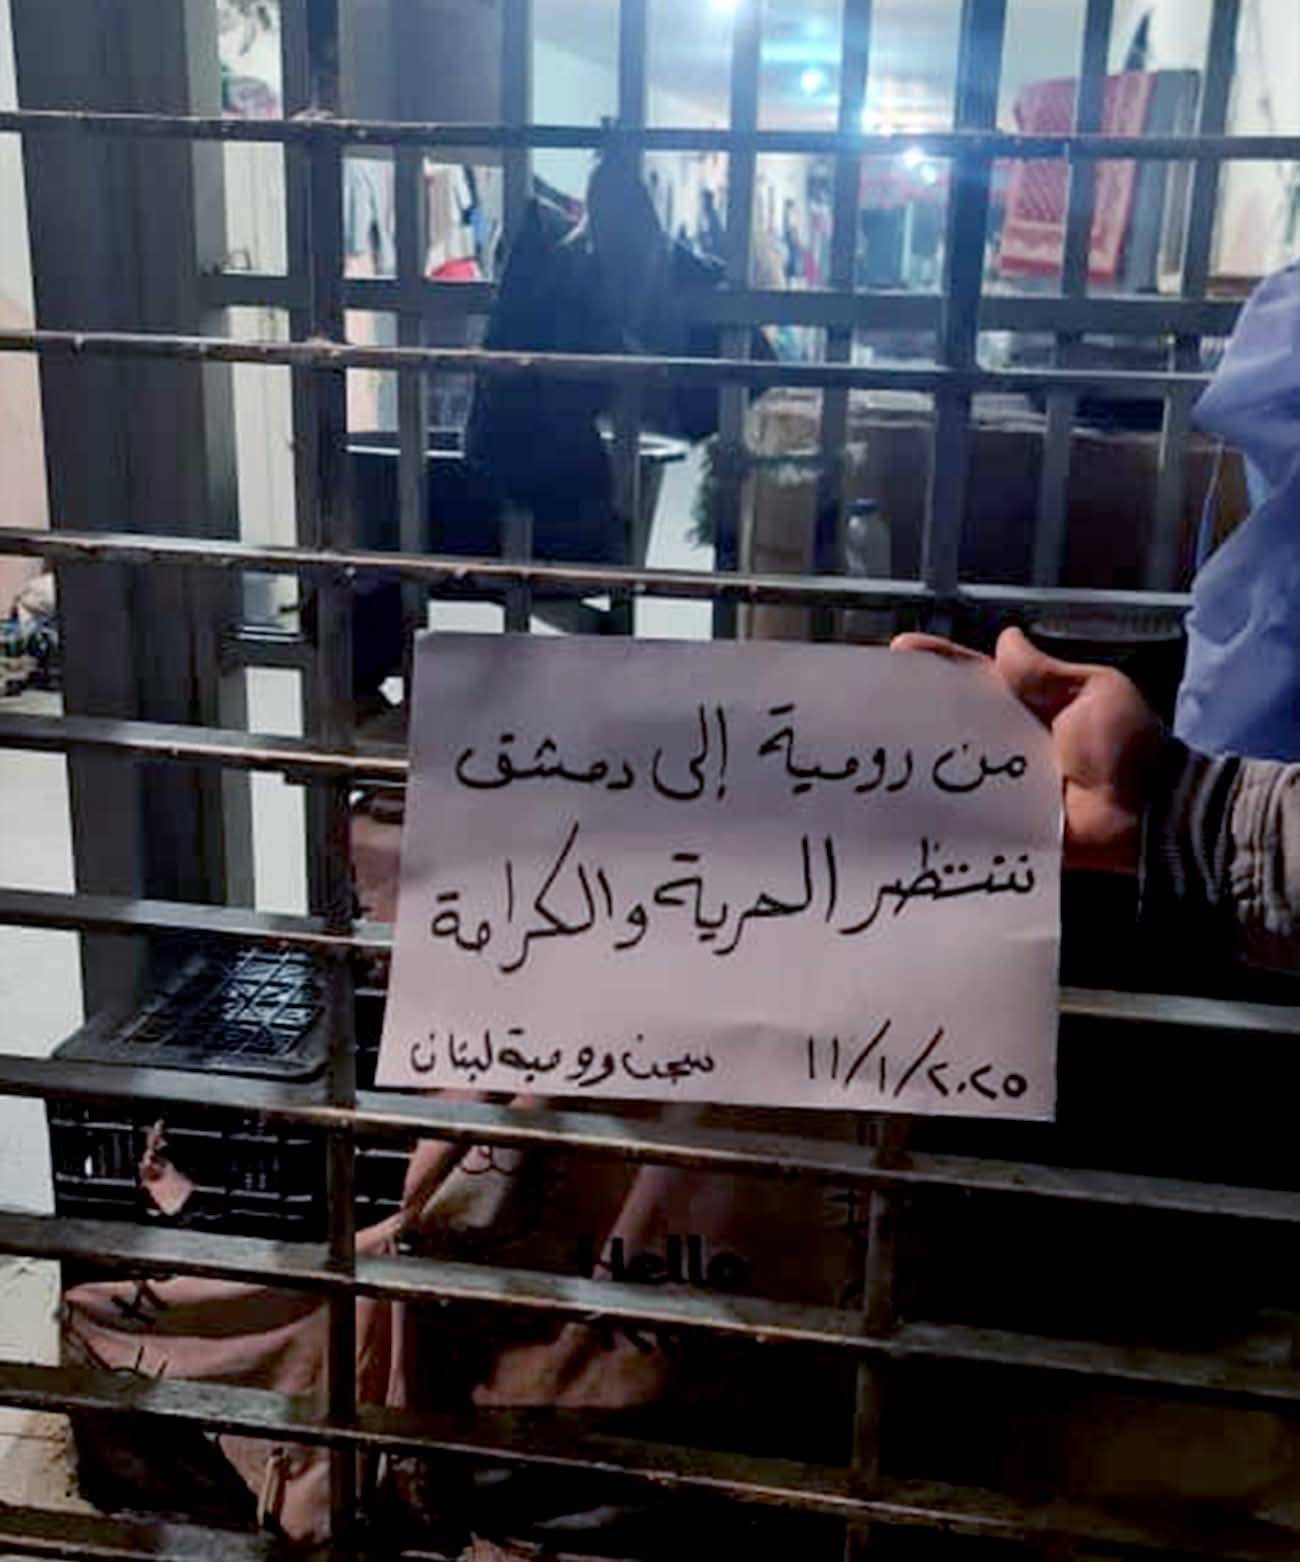 من رومية إلى دمشق
ننتظر الحرية والكرامة
١١/١/٢٠٢٥ سجن رومية لبنان
Hello